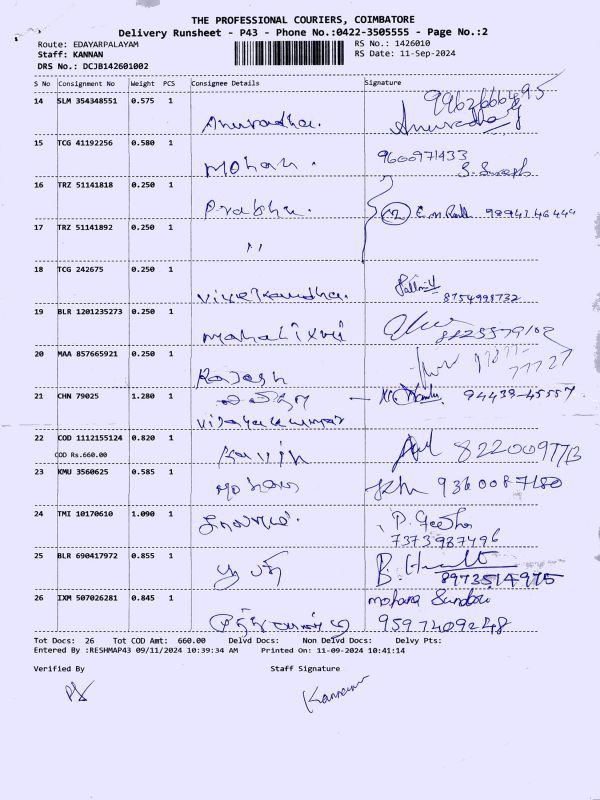 THE PROFESSIONAL COURIERS, COIMBATORE
Delivery Runsheet - P43 - Phone No.:0422-3505555 - Page No.:2
Route: EDAYARPALAYAM RS No.: 1426010
Staff: KANNAN RS Date: 11-Sep-2024
DRS No.: DCJB142601002
S No Consignment No Weight PCS Consignee Details Signature
14 SLM 354348551 0.575 1
Anuradha. Anuradha
15 TCG 41192256 0.580 1
Mohan. 9600971433
S. Suresh
16 TRZ 51141818 0.250 1
Prabhu.
17 TRZ 51141892 0.250 1
"
18 TCG 242675 0.250 1
8754998732
19 BLR 1201235273 0.250 1
Mahalixmi
20 MAA 857665921 0.250 1
Rajesh
21 CHN 79025 1.280 1
94439-45557
Vijayakumar
22 COD 1112155124 0.820 1
COD Rs.660.00 Kavin
23 KMU 3560625 0.585 1
Mohan 9360087180
24 TMI 10170610 1.090 1
P. Geetha
7373987496
25 BLR 690417972 0.855 1
8973514975
26 IXM 507026281 0.845 1
mohana Sundari
9597409248
Tot Docs: 26 Tot COD Amt: 660.00 Delvd Docs: Non Delvd Docs: Delvy Pts:
Entered By :RESHMAP43 09/11/2024 10:39:34 AM Printed On: 11-09-2024 10:41:14
Verified By Staff Signature
Kannan